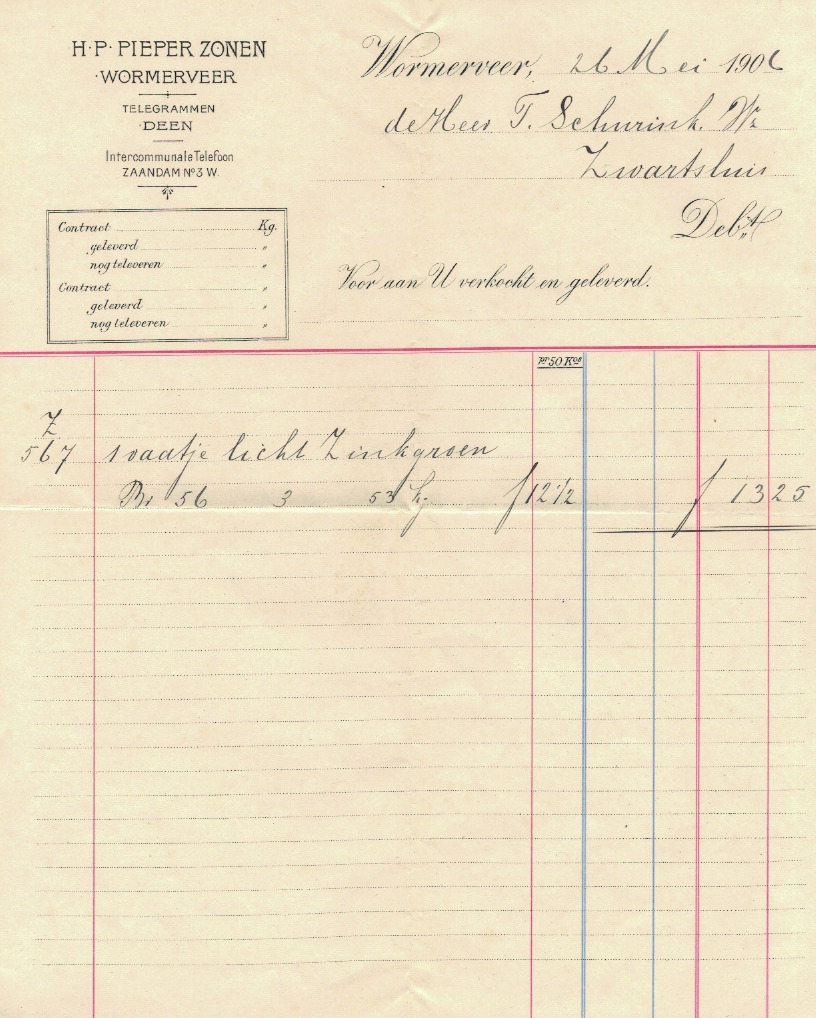 H·P· PIEPER ZONEN
·WORMERVEER
TELEGRAMMEN
·DEEN
Intercommunale Telefoon
ZAANDAM No 3 W.
Contract Kg.
geleverd "
nog televeren "
Contract "
geleverd "
nog televeren "
Wormerveer, 26 Mei 1906
de Heer T. Schurink Wz
Zwartsluis
Debt
Voor aan U verkocht en geleverd.
pr 50 Kos
Z
567 1 vaatje licht Zinkgroen
Br 56 3 53 kg f 12 1/2 f 13 25